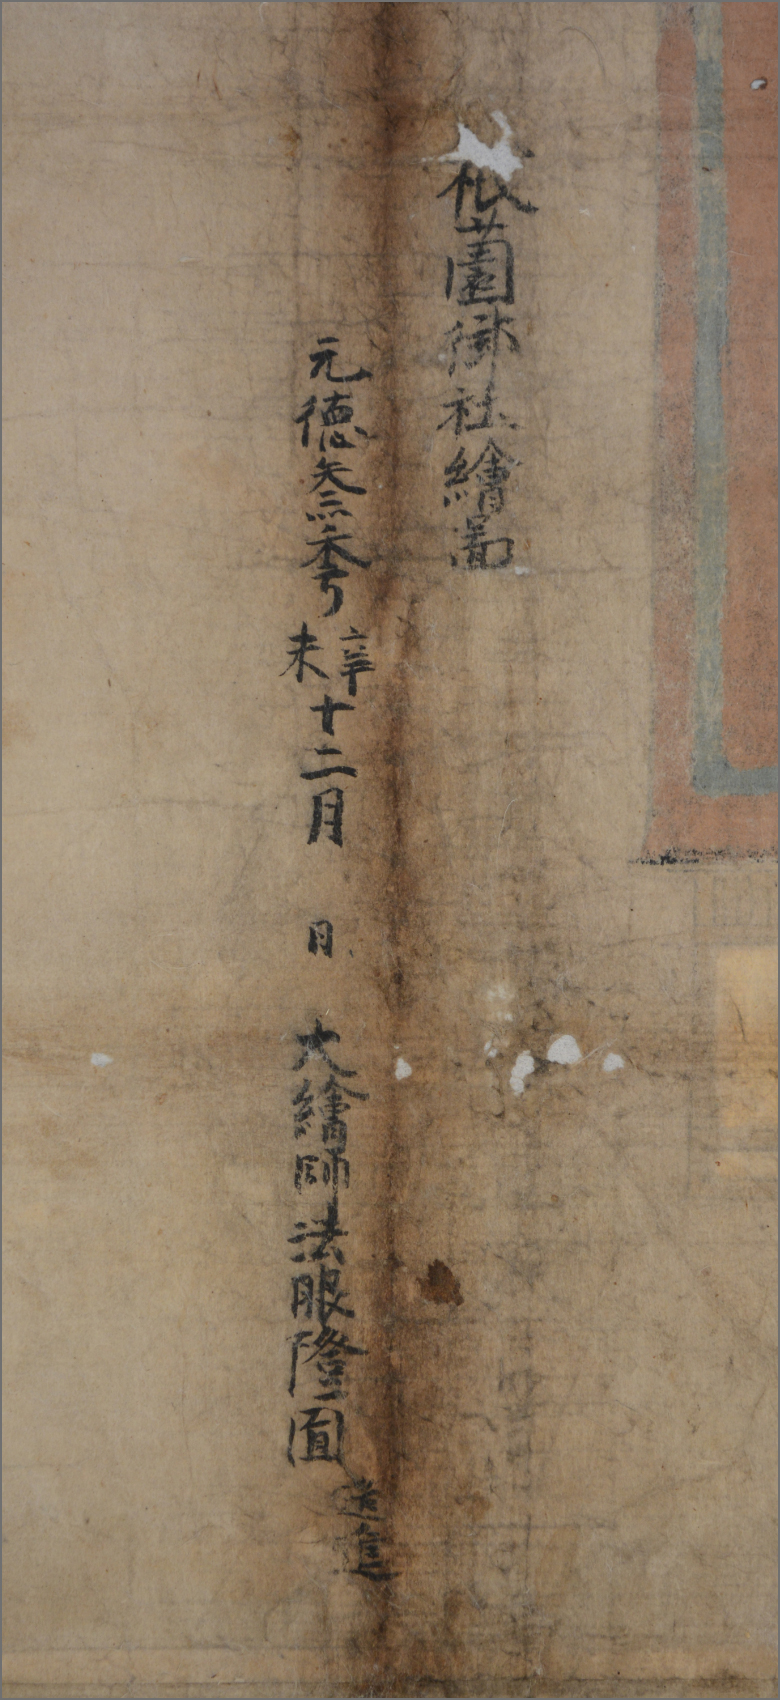 祇薗御社繪圖
元德叄年辛未十二月 日 大繪師法眼隆圓